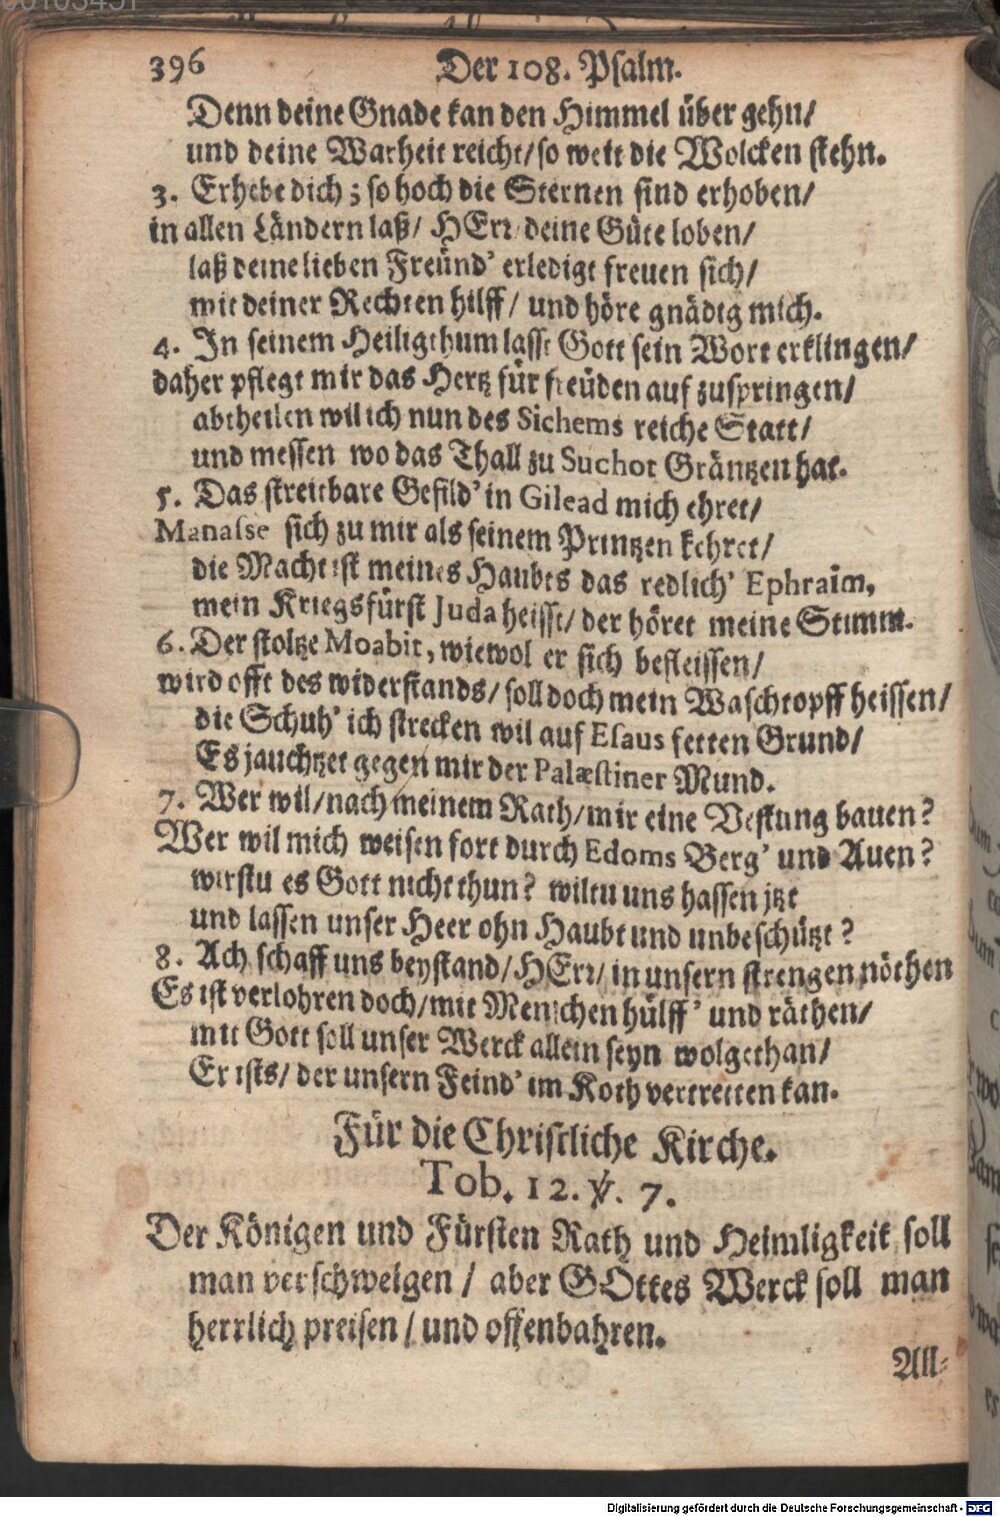 396 Der 108. Psalm.
Denn deine Gnade kan den Himmel über gehn/
und deine Warheit reicht/ so weit die Wolcken stehn.
3. Erhebe dich; so hoch die Sternen sind erhoben/
in allen Ländern laß/ HErr deine Güte loben/
laß deine lieben Freünd' erledigt freuen sich/
mit deiner Rechten hilff/ und höre gnädig mich.
4. In seinem Heiligthum lässt Gott sein Wort erklingen/
daher pflegt mir das Hertz für freüden auf zuspringen/
abtheilen wil ich nun des Sichems reiche Statt/
und messen wo das Thall zu Suchot Gräntzen hat.
5. Das streitbare Gefild' in Gilead mich ehret/
Manasse sich zu mir als seinem Printzen kehret/
die Macht ist meines Haubts das redlich' Ephraim,
mein Kriegsfürst Juda heisst/ der höret meine Stimm.
6. Der stoltze Moabit, wiewol er sich befleissen/
wird offt des widerstands/ soll doch mein Waschtopff heissen/
die Schuh' ich strecken wil auf Esaus fetten Grund/
Es jauchtzet gegen mir der Palæstiner Mund.
7. Wer wil/ nach meinem Rath/ mir eine Vestung bauen?
Wer wil mich weisen fort durch Edoms Berg' und Auen?
wirstu es Gott nicht thun? wiltu uns hassen jtzt
und lassen unser Heer ohn Haubt und unbeschützt?
8. Ach schaff uns beystand/ HErr/ in unsern strengen nöthen
Es ist verlohren doch/ mit Menschen hülff' und räthen/
mit Gott soll unser Werck allein seyn wolgethan/
Er ists/ der unsern Feind' im Koth vertretten kan.
Für die Christliche Kirche.
Tob. 12. ℣. 7.
Der Königen und Fürsten Rath und Heimligkeit soll
man verschweigen/ aber GOttes Werck soll man
herrlich preisen/ und offenbahren.
All=
Digitalisierung gefördert durch die Deutsche Forschungsgemeinschaft - DFG